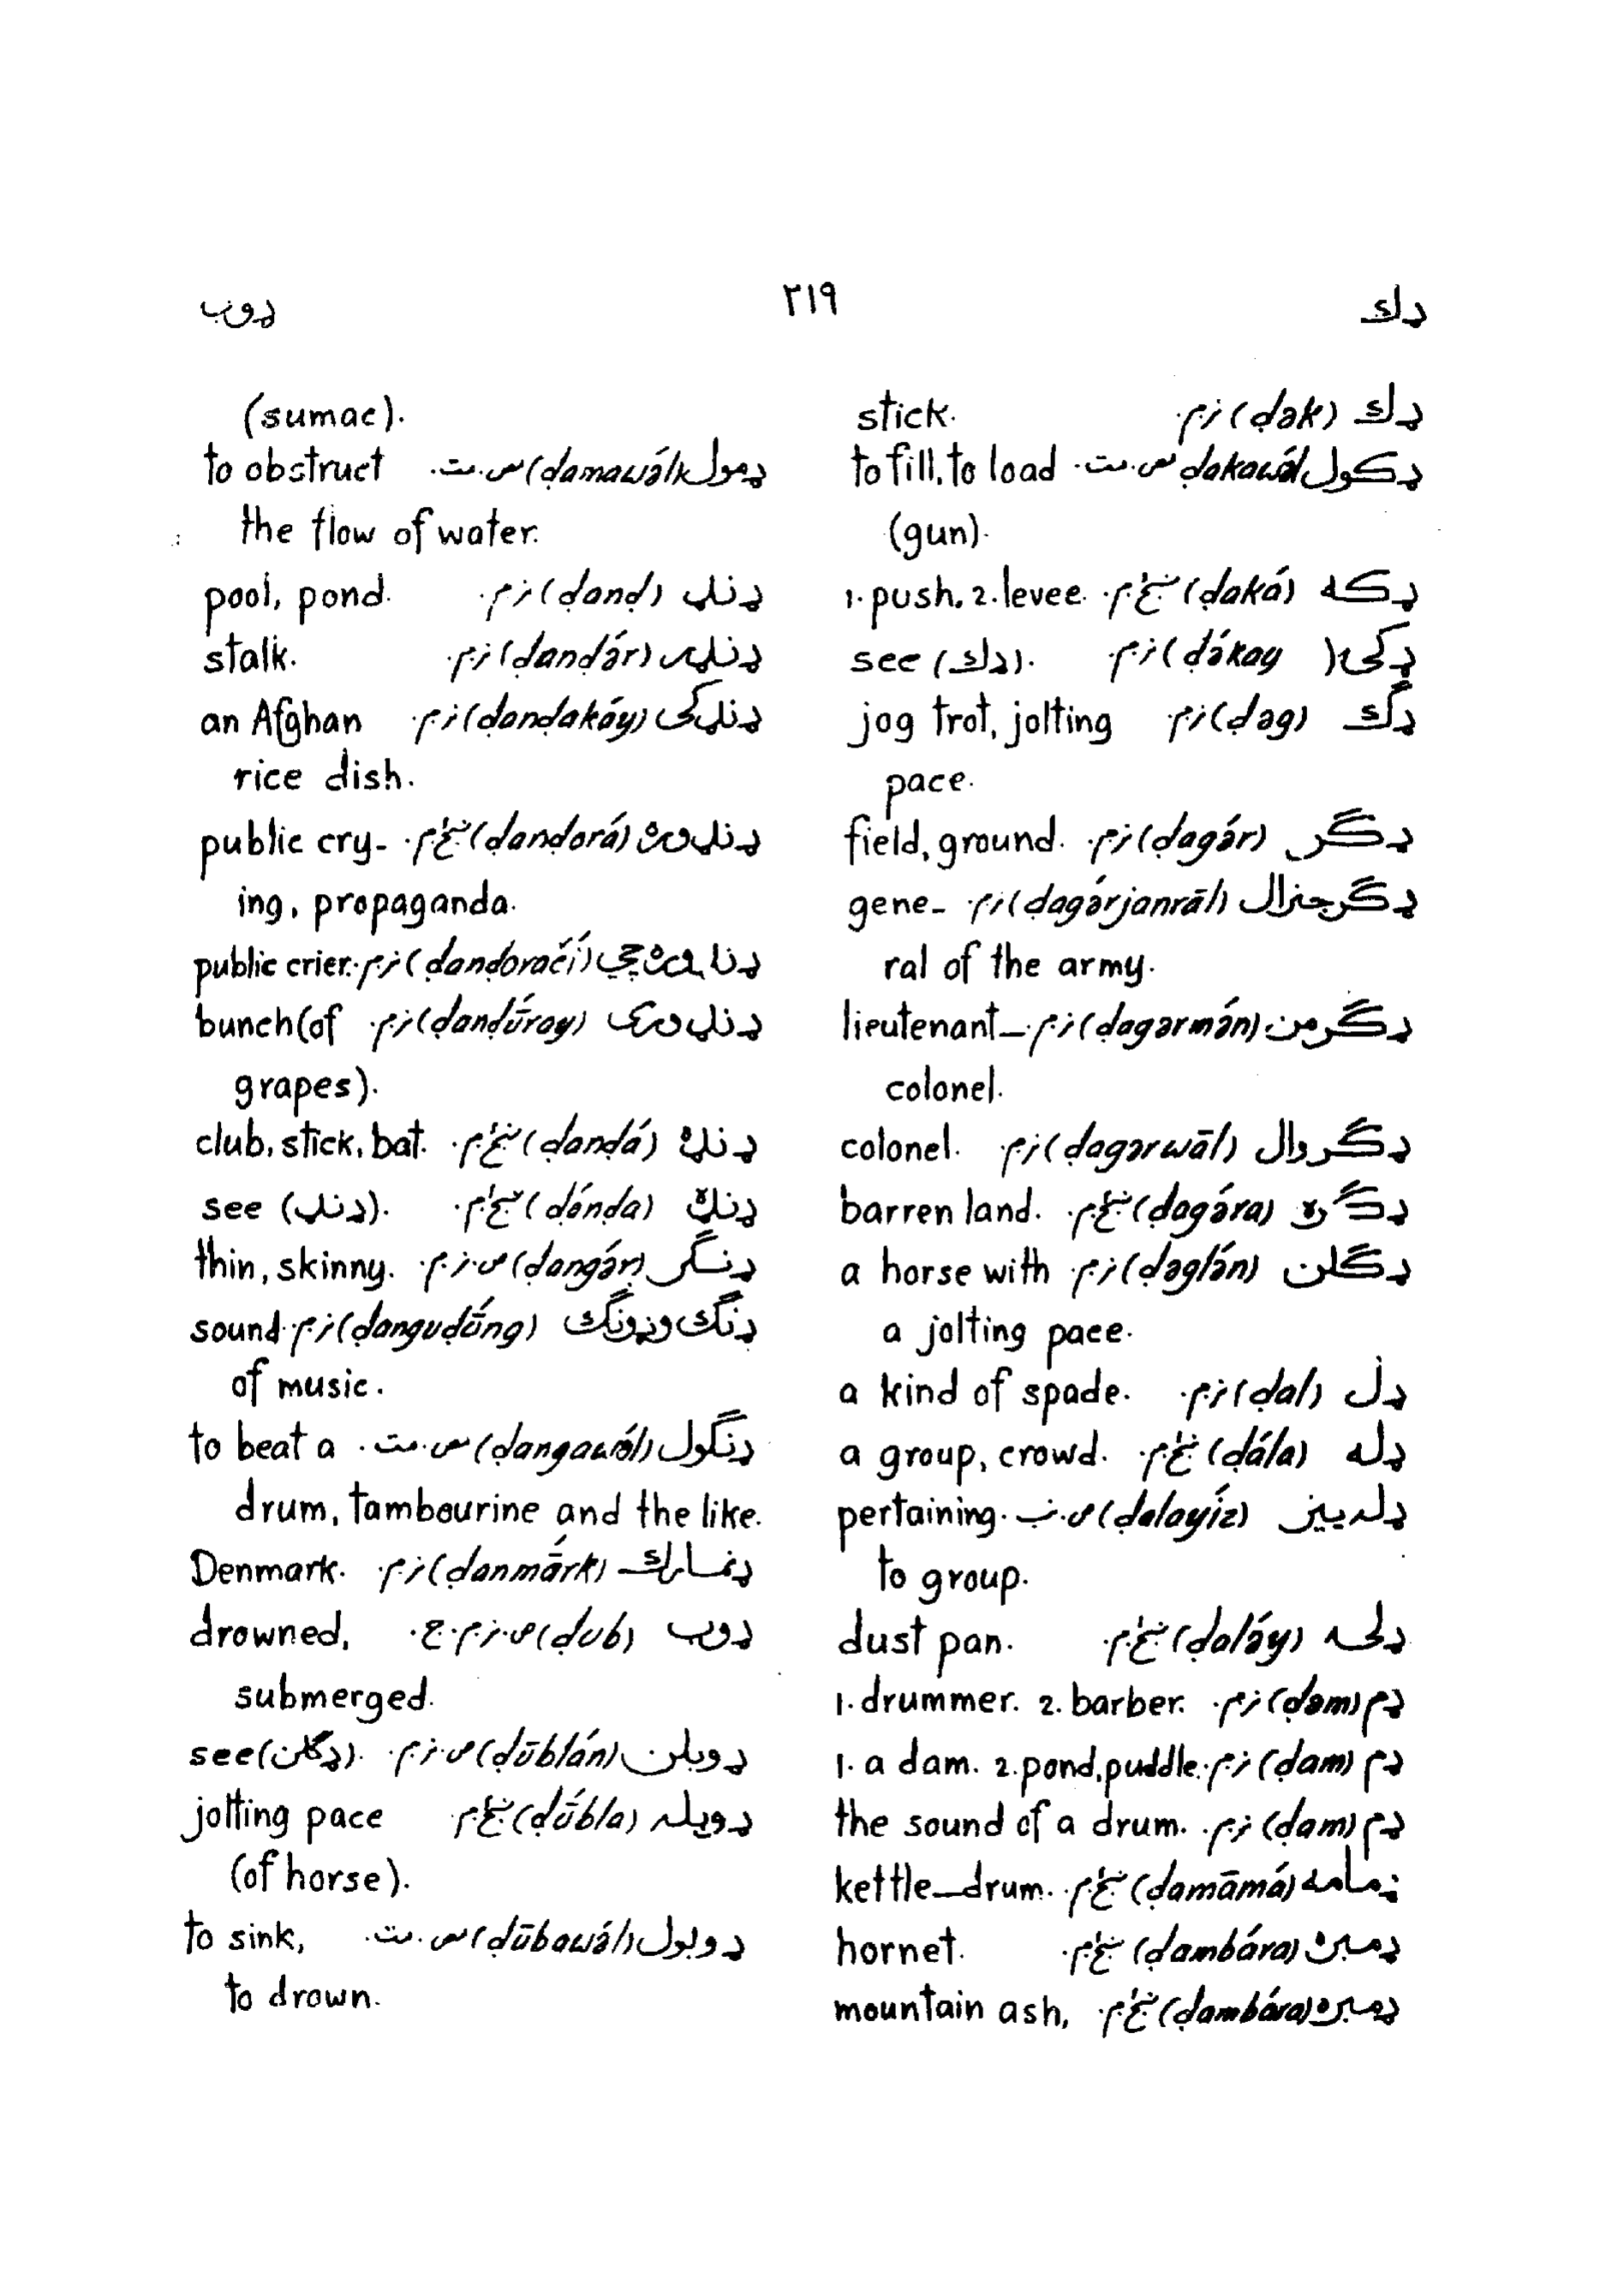 ډك ۲۱۹ ډوب
ډك (ḍək) نړم. stick.
ډکول ḍakawə́l س.مت. to fill, to load
(gun).
ډکه (ḍaká) ښځم. 1. push, 2. levee.
ډکی (ḍə́kay) نړم. see (ډك).
ډګ (ḍəg) نړم. jog trot, jolting
pace.
ډګر (ḍagə́r) نړم. field, ground.
ډګرجنرال (ḍagə́rjanrāl) نړم. gene-
ral of the army.
ډګرمن (ḍagərmə́n) نړم. lieutenant-
colonel.
ډګروال (ḍagərwāl) نړم. colonel.
ډګره (ḍagə́ra) ښځم. barren land.
ډګلن (ḍəglə́n) نړم. a horse with
a jolting pace.
ډل (ḍal) نړم. a kind of spade.
ډله (ḍála) ښځم. a group, crowd.
ډله ییز (ḍalayíz) ص.ب. pertaining
to group.
(ḍaláy) ښځم. dust pan.
ډم (ḍəm) نړم. 1. drummer. 2. barber.
ډم (ḍam) نړم. 1. a dam. 2. pond, puddle.
ډم (ḍam) نړم. the sound of a drum.
ډمامه (ḍamāmá) ښځم. kettle-drum.
ډمبره (ḍambára) ښځم. hornet.
ډمبره (ḍambára) ښځم. mountain ash,
(sumac).
ډمول (ḍamawə́l) س.مت. to obstruct
the flow of water.
ډنډ (ḍanḍ) نړم. pool, pond.
ډنډر (ḍanḍə́r) نړم. stalk.
ډنډکی (ḍanḍakáy) نړم. an Afghan
rice dish.
ډنډوره (ḍanḍorá) ښځم. public cry-
ing, propaganda.
ډنډوره چي (ḍanḍoračí) نړم. public crier.
ډنډوری (ḍanḍū́ray) نړم. bunch (of
grapes).
ډنډه (ḍanḍá) ښځم. club, stick, bat.
ډنډه (ḍánḍa) ښځم. see (ډنډ).
ډنګر (ḍangə́r) ص.نړم. thin, skinny.
ډنګ وډونګ (ḍanguḍū́ng) نړم. sound
of music.
ډنګول (ḍangawə́l) س.مت. to beat a
drum, tambourine and the like.
ډنمارك (ḍanmā́rk) نړم. Denmark.
ډوب (ḍub) ص.نړم.ج. drowned,
submerged.
ډوبلن (ḍūblán) ص.نړم. see (ډګلن).
ډوبله (ḍū́bla) ښځم. jolting pace
(of horse).
ډوبول (ḍūbawə́l) س.مت. to sink,
to drown.